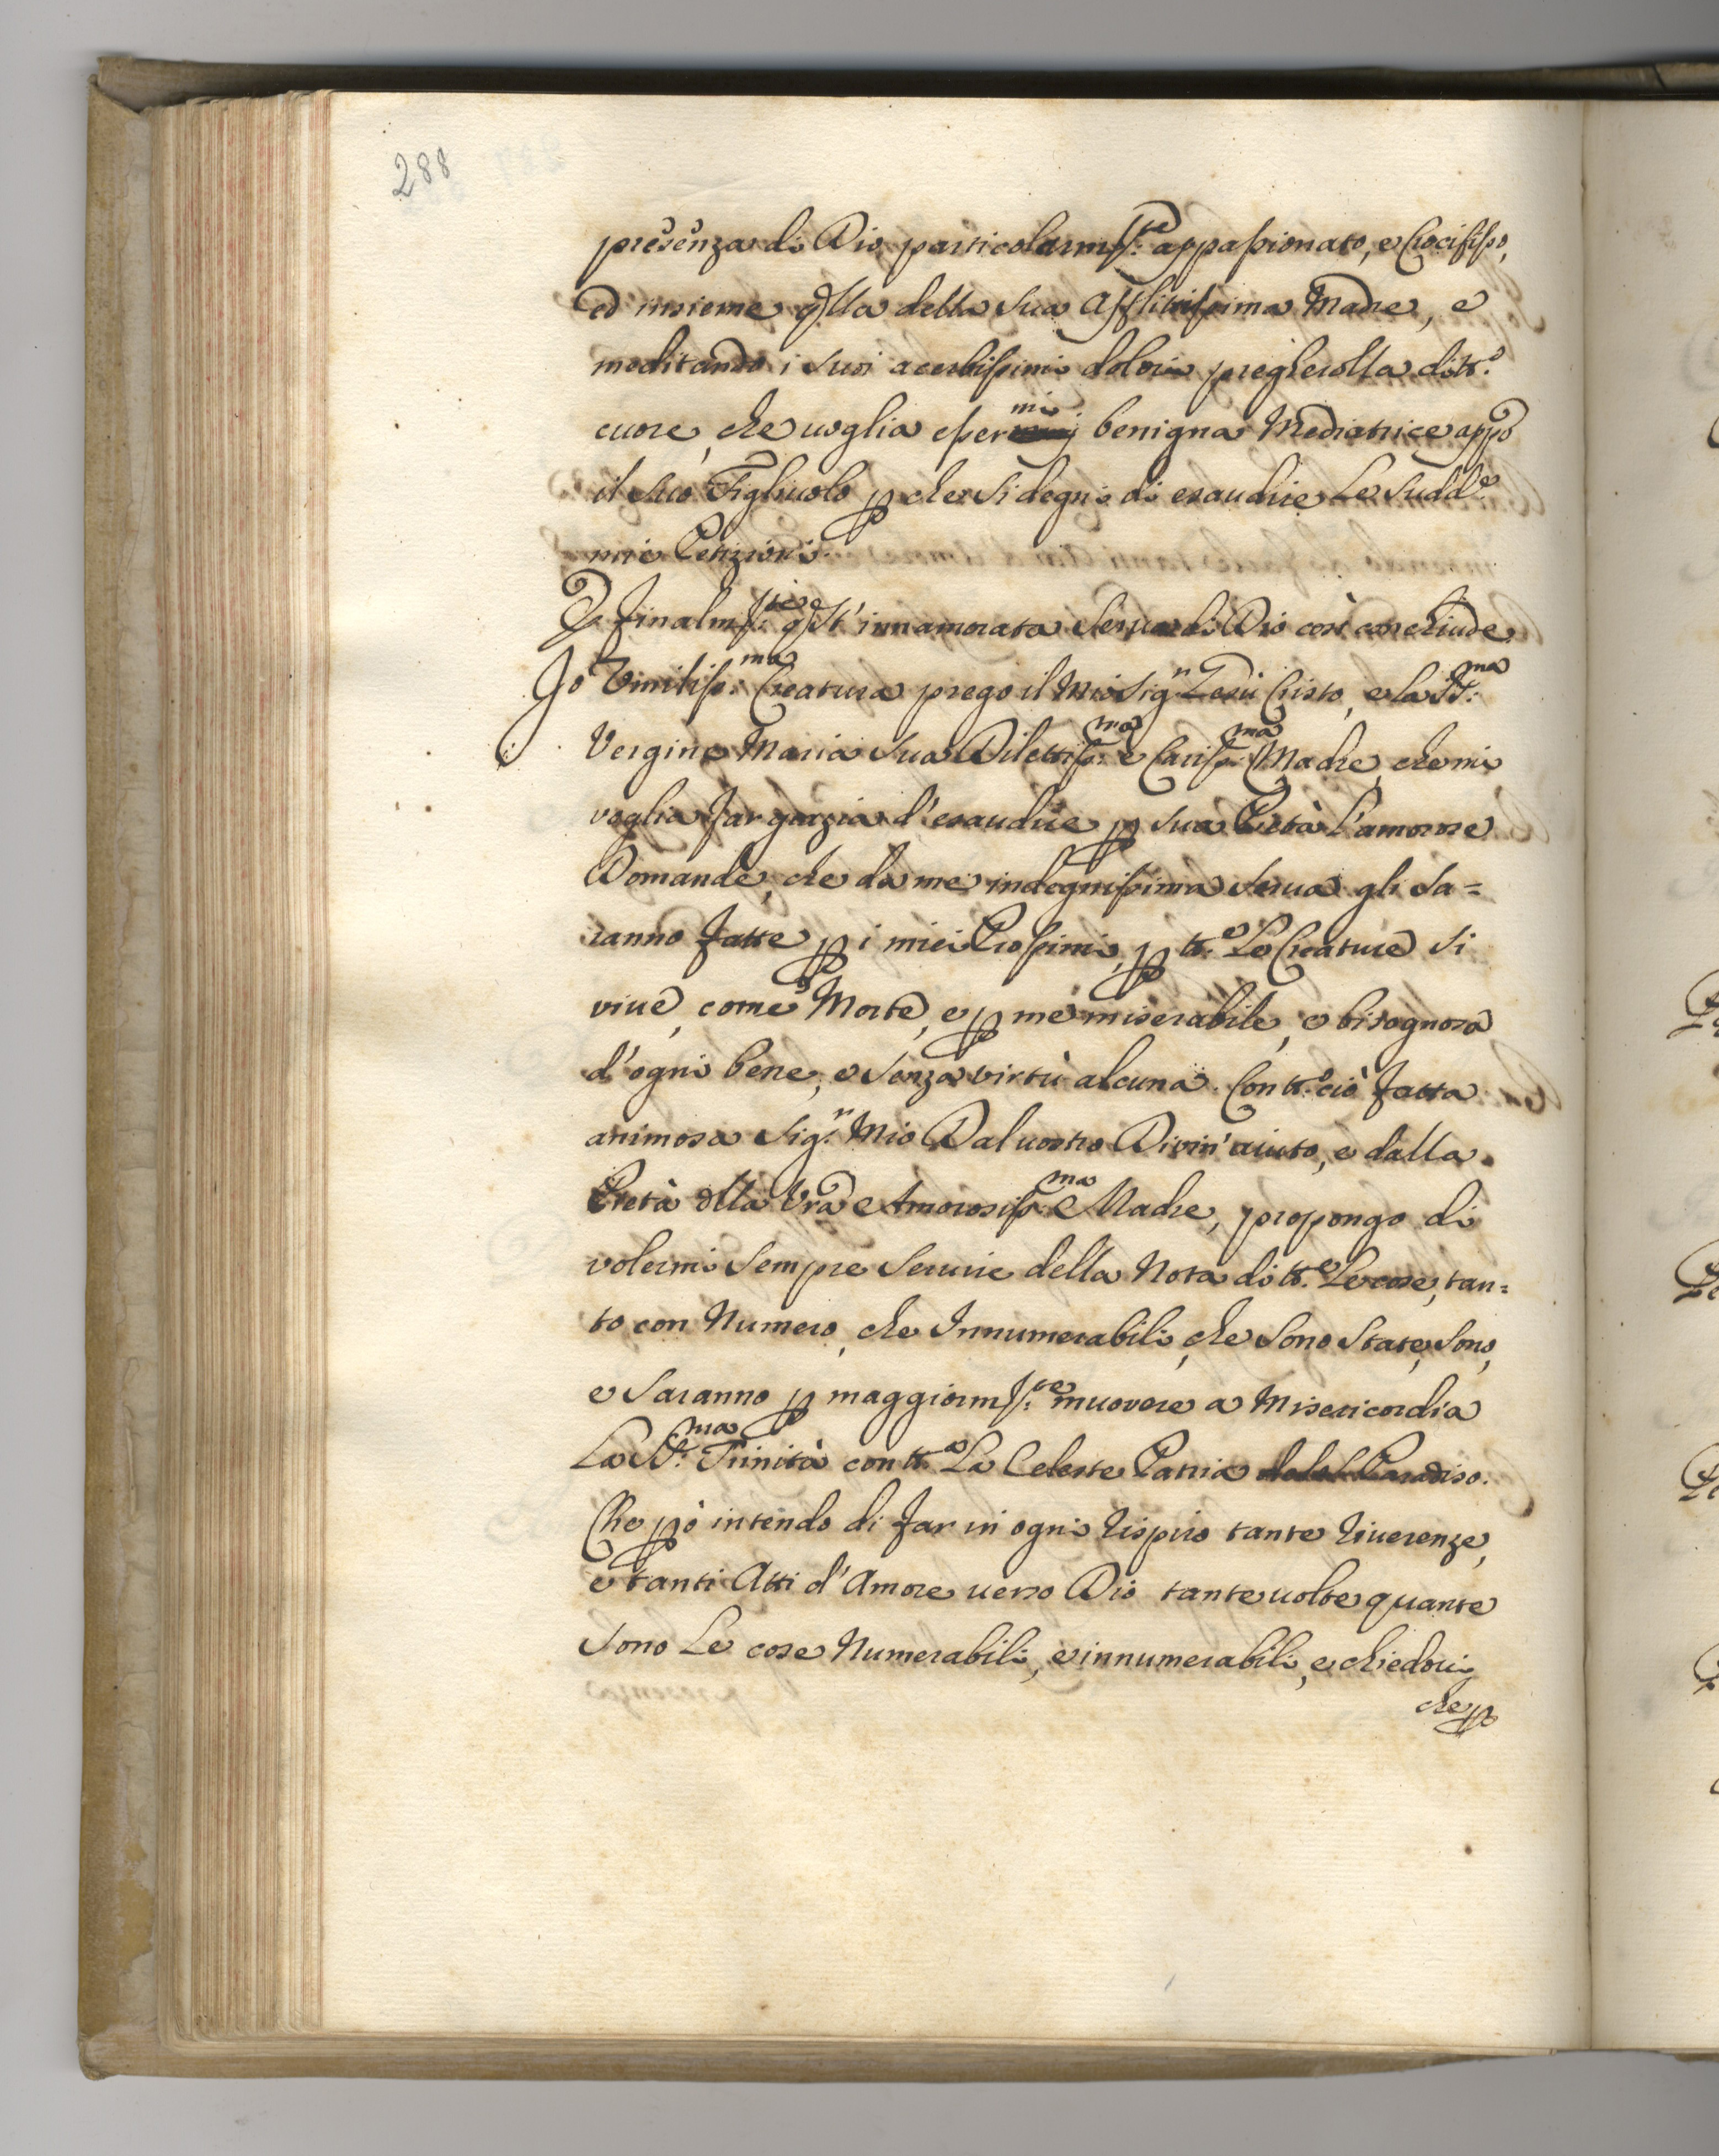 288
presenza di Dio particolarm.te appassionato, e Crocifisso,
ed insieme qlla della sua afflittissima Madre, e
meditando i suoi acerbissimi dolori pregherolla di tt.o
cuore, che uoglia essermi benigna Mediatrice app̃o
il suo Figliuolo p che si degni di esaudire Le sudd.e
mie Petizioni.
E finalm.te q.st'innamorata Serua di Dio così conchiude
Io Vmiliss.ma Creatura prego il Mio Sig.r Gesù Cristo, e la SS.ma
Vergine Maria sua Dilettiss.ma e Cariss.ma Madre, che mi
voglia far grazia d'esaudire p sua Pietà l'amorose
Domande, che da me indegnissima serua gli sa=
ranno fatte p i miei Prossimi, p tt.e Le Creature si
viue, come Morte, e p me miserabile, e bisognosa
d'ogni bene, e senza virtù alcuna. Con tt.o ciò fatta
animosa Sig.r Mio Dal uostro Divin'aiuto, e dalla
Pietà dlla Vr̃a Amorosiss.ma Madre, propongo di
volermi sempre seruire della Nota di tt.e Le cose, tan=
to con Numero, che Innumerabili, che sono state, sono,
e saranno p maggiorm.te muovere a Misericordia
La SS.ma Trinità con tt.a La Celeste Patria del Paradiso.
Che p̃ò intendo di far in ogni rispiro tante riuerenze,
e tanti Atti d'Amore uerso Dio tante uolte quante
sono Le cose Numerabili, e innumerabili, e chiedoui
che p